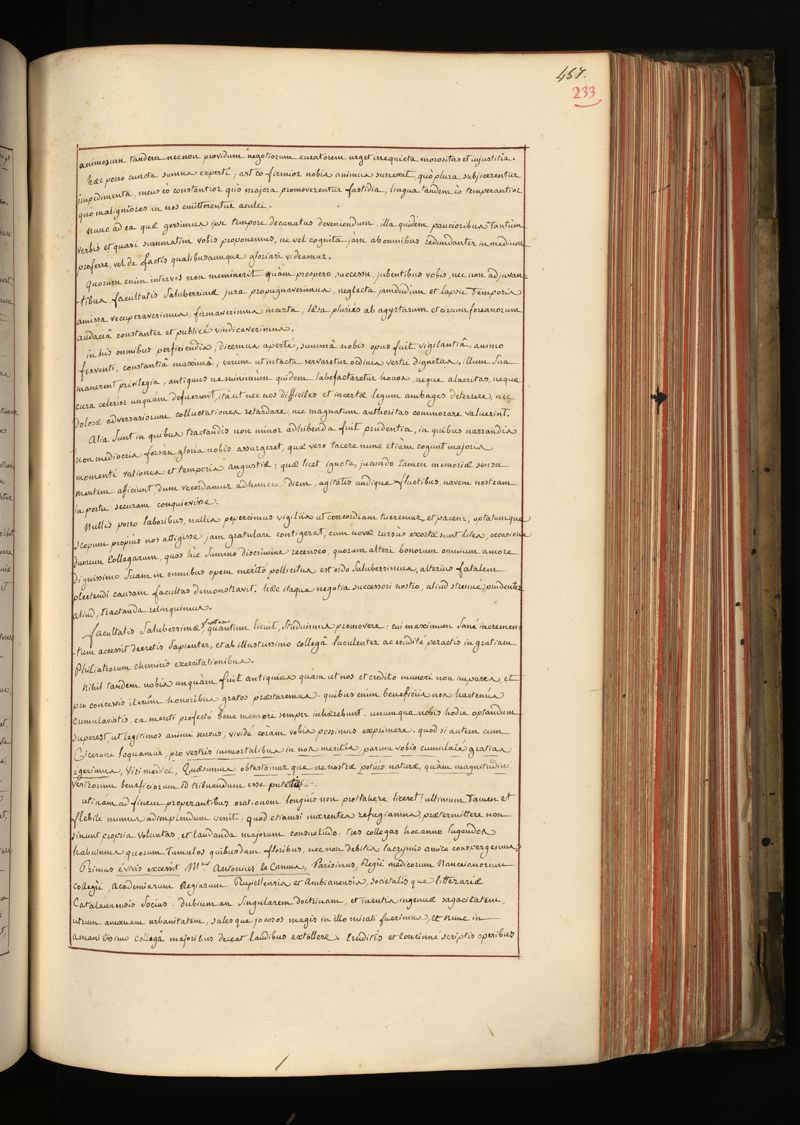 457.
233
animosum tandem nec non providum negotiorum curatorem urget irrequieta morositas et injustitia.
hæc porro cuncta sumus experti; ast eo firmior nobis animus surrexit, quò plura subjicerentur
impedimenta, mens eò constantior quo majora promoverentur fastidia, lingua tandem eò temperantior
quo maligniores in nos emitterentur aculei.
nunc ad ea quæ gessimus ipsi tempore decanatus deveniendum. illa quidem paucioribus tantum
verbis et quasi summatim vobis proponemus, ne vel cognita jàm ab omnibus redundanter in medium
proferre, vel de factis qualibuscumque gloriari videamur.
Quorum enim inter vos non meminerit quàm prospero successu, jubentibus vobis, nec non adjuvan-
tibus, facultatis Saluberrimæ jura propugnaverimus, neglecta jamdudum et lapsu temporis
amissa recuperaverimus, firmaverimus incerta, læsa pluriès ab agyrtarum et circumforeanorum
audaciâ constanter et publicè vindicaverimus.
in his omnibus perficiendis, dicemus apertè, summâ nobis opus fuit vigilantiâ, animo
ferventi, constantiâ maximâ; verum ut intacta servaretur ordinis vestri dignitas, illum sua
manerent privilegia, antiquus ne minimùm quidem labefactaretur honos, neque alacritas, neque
cura celerior unquàm defuerunt, ità ut nec nos difficiles et incertæ legum ambages deterrere, nec
dolosæ adversariorum colluctationes retardare, nec magnatum authoritas commorare valuerint.
Alia sunt in quibus tractandis non minor adhibenda fuit prudentia, in quibus narrandis
non mediocris forsàn gloria nobis assurgeret, quæ vero tacere nunc etiàm cogunt majoris
momenti rationes et temporis angustiæ: quæ licet ignota, jucundo tamen memoriæ sensu
mentem aficiunt, dum recordamur ad hunce diem, agitatis undique fluctibus, navem nostram
in portu securam conquievisse.
Nullis porro laboribus, nullis pepercimus vigiliis ut concordiam tueremur et pacem, optatumque
scopum propiùs nos attigisse jam gratulare contigerat, cum novæ rursùs exortæ sunt lites, occasione
duorum Collegarum, quos hîc summo discrimine recenseo, quorum alteri bonorum omnium amore
dignissimo suam in omnibus opem meritò pollicitus est ordo saluberrimus, alterius fatalem
plectendi causam facultas demonstravit. hæc itaque negotia successori nostro, aliud strenuè, prudenter
aliud, tractanda relinquimus.
facultatis Saluberrimæ quantùm licuit, studuimus promovere: cui maximum sanè incremen-
tum accessit decretis sapienter, et ab illustrissimo collegâ luculenter ac eruditè peractis in gratiam
Philiatrorum chimicis exercitationibus.
Nihil tandem nobis unquàm fuit antiquius quàm ut nos et credito muneri non impares, et
pro concessis iterùm honoribus gratos præstaremus. quibus enim beneficiis nos hactenùs
cumulavistis, ea menti profectò bene memori semper inhærebunt. unumque nobis hodie optandum
superest, ut legitimos animi sensus, vividè coràm vobis possimus exprimere. quod si autem cum
Cicerone loquamur, pro vestris immortalibus in nos meritis, parum vobis cumulatè gratias
egerimus, viri medici, Quæsumus obtestamur que ne nostræ potius naturæ, quàm magnitudini
vestrorum beneficiorum id tribuendum esse putetis.
utinam ad finem properantibus orationem longiùs non protrahere liceret! ultimum tamen et
flebile munus adimplendum venit, quod etiamsi mœrentes refugiamus, prætermittere non
sinunt propria voluntas, et laudanda majorum consuetudo. tres collegas hoc anno lugendos
habuimus quorum tumulos quibusdam floribus, nec non debitis lacrymis amicè conspergemus.
Primus è vivis excessit M.er Antonius le Camus, Parisinus, Regii medicorum Nanceianorum
Collegii, Academiarum Regiarum Rupellensis et Ambianensis, societatis que litterariæ
Catalaunensis socius. Dubium an singularem doctrinam, et mentis ingenuæ sagacitatem,
utrum amœnam urbanitatem, sales que jocosos magis in illo mirati fuerimus, et nunc in
amantissimo collegâ majoribus deceat laudibus extollere. Eruditis et concinnè scriptis operibus